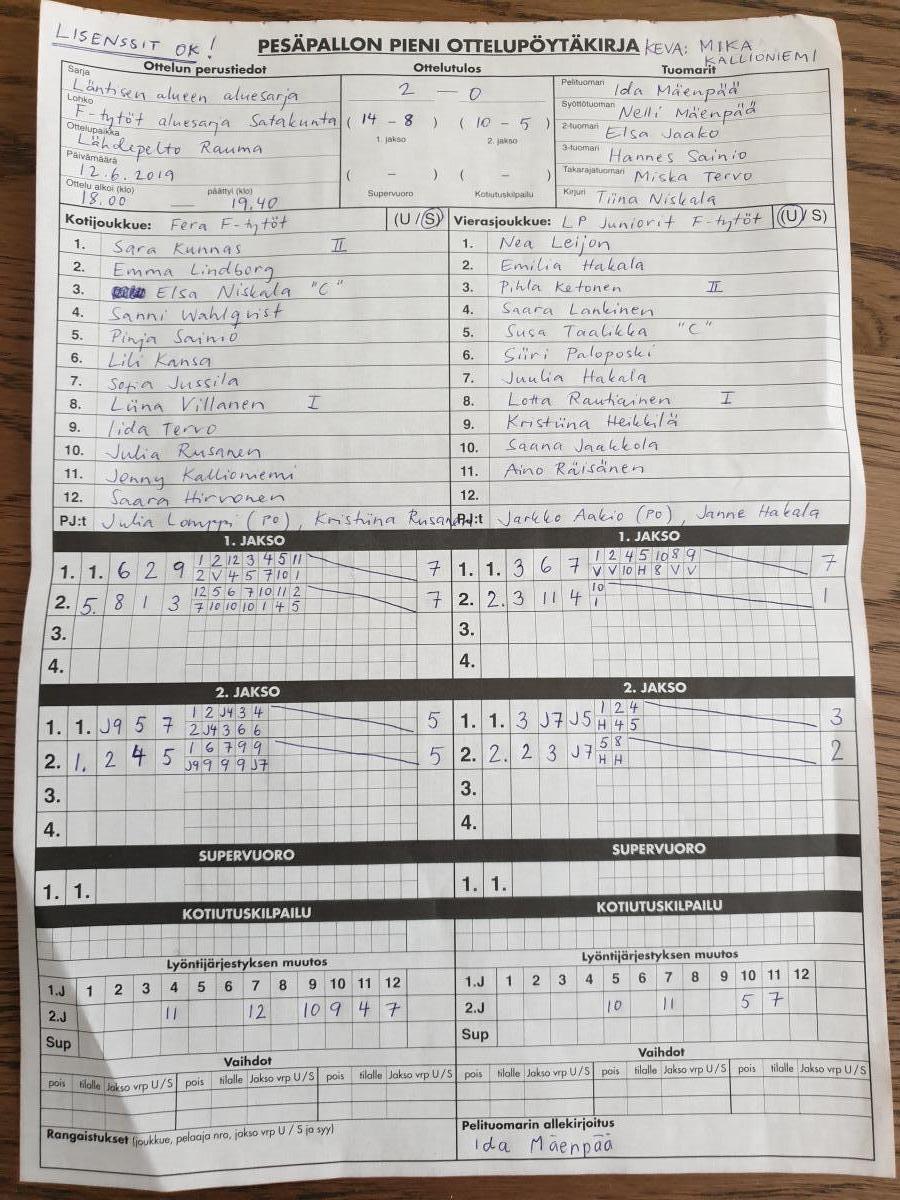 LISENSSIT OK!
PESÄPALLON PIENI OTTELUPÖYTÄKIRJA KEVA: MIKA KALLIONIEMI
Ottelun perustiedot Ottelutulos Tuomarit
Sarja Läntisen alueen aluesarja 2 — 0 Pelituomari Ida Mäenpää
Lohko F-tytöt aluesarja Satakunta (14 - 8) (10 - 5) Syöttötuomari Nelli Mäenpää
1. jakso 2. jakso
Ottelupaikka Lähdepelto Rauma 2-tuomari Elsa Jaako
Päivämäärä 12.6.2019 ( - ) ( - ) 3-tuomari Hannes Sainio
Supervuoro Kotiutuskilpailu
Takarajatuomari Miska Tervo
Ottelu alkoi (klo) 18.00 — päättyi (klo) 19.40 Kirjuri Tiina Niskala
Kotijoukkue: Fera F-tytöt (U/S) Vierasjoukkue: LP Juniorit F-tytöt (U/S)
1. Sara Kunnas II 1. Nea Leijon
2. Emma Lindborg 2. Emilia Hakala
3. Elsa Niskala "C" 3. Pihla Ketonen II
4. Sanni Wahlqvist 4. Saara Lankinen
5. Pinja Sainio 5. Susa Taalikka "C"
6. Lili Kansa 6. Siiri Paloposki
7. Sofia Jussila 7. Juulia Hakala
8. Liina Villanen I 8. Lotta Rautiainen I
9. Iida Tervo 9. Kristiina Heikkilä
10. Julia Rusanen 10. Saana Jaakkola
11. Jenny Kallioniemi 11. Aino Räisänen
12. Saara Hirvonen 12.
PJ:t Julia Lomppi (PO), Kristiina Rusanen PJ:t Jarkko Aakio (PO), Janne Hakala
1. JAKSO 1. JAKSO
1. 1. 6 2 9 1 2 12 3 4 5 11 7 1. 1. 3 6 7 1 2 4 5 10 8 9 7
2 V 4 5 7 10 1 V V 10 H 8 V V
2. 5. 8 1 3 12 5 6 7 10 11 2 7 2. 2. 3 11 4 10 1
7 10 10 10 1 4 5 1
3. 3.
4. 4.
2. JAKSO 2. JAKSO
1. 1. J9 5 7 1 2 J4 3 4 5 1. 1. 3 J7 J5 1 2 4 3
2 J4 3 6 6 H 4 5
2. 1. 2 4 5 1 6 7 9 9 5 2. 2. 2 3 J7 5 8 2
J9 9 9 9 J7 H H
3. 3.
4. 4.
SUPERVUORO SUPERVUORO
1. 1. 1. 1.
KOTIUTUSKILPAILU KOTIUTUSKILPAILU
Lyöntijärjestyksen muutos Lyöntijärjestyksen muutos
1.J 1 2 3 4 5 6 7 8 9 10 11 12 1.J 1 2 3 4 5 6 7 8 9 10 11 12
2.J 11 12 10 9 4 7 2.J 10 11 5 7
Sup Sup
Vaihdot Vaihdot
pois tilalle Jakso vrp U/S pois tilalle Jakso vrp U/S pois tilalle Jakso vrp U/S pois tilalle Jakso vrp U/S pois tilalle Jakso vrp U/S pois tilalle Jakso vrp U/S
Rangaistukset (joukkue, pelaaja nro, jakso vrp U / S ja syy) Pelituomarin allekirjoitus
Ida Mäenpää